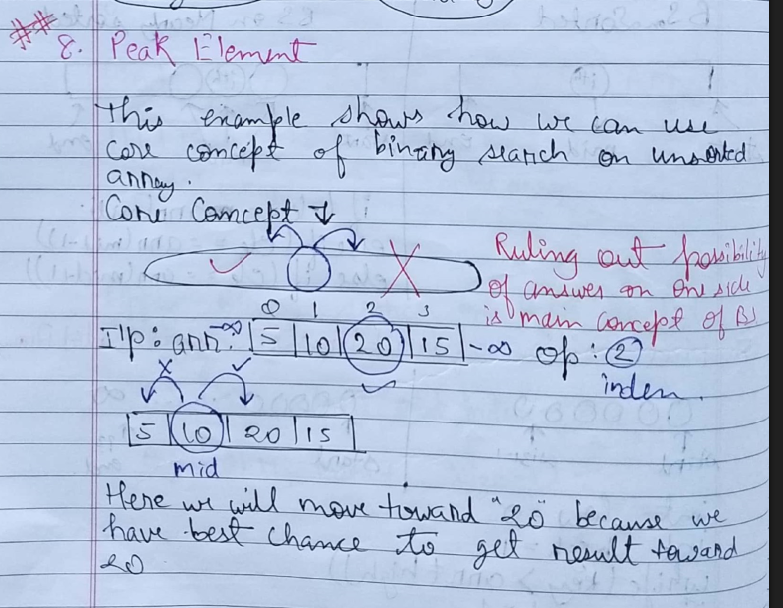 ## 8. Peak Element
This example shows how we can use
core concept of binary search on unsorted
array.
Core Concept ↓
Ruling out possibility
of answer on one side
is main concept of BS
0 1 2 3
I/p: arr: -∞ 5 10 20 15 -∞ op: 2
index.
5 10 20 15
mid
Here we will move toward "20" because we
have best chance to get result toward
20